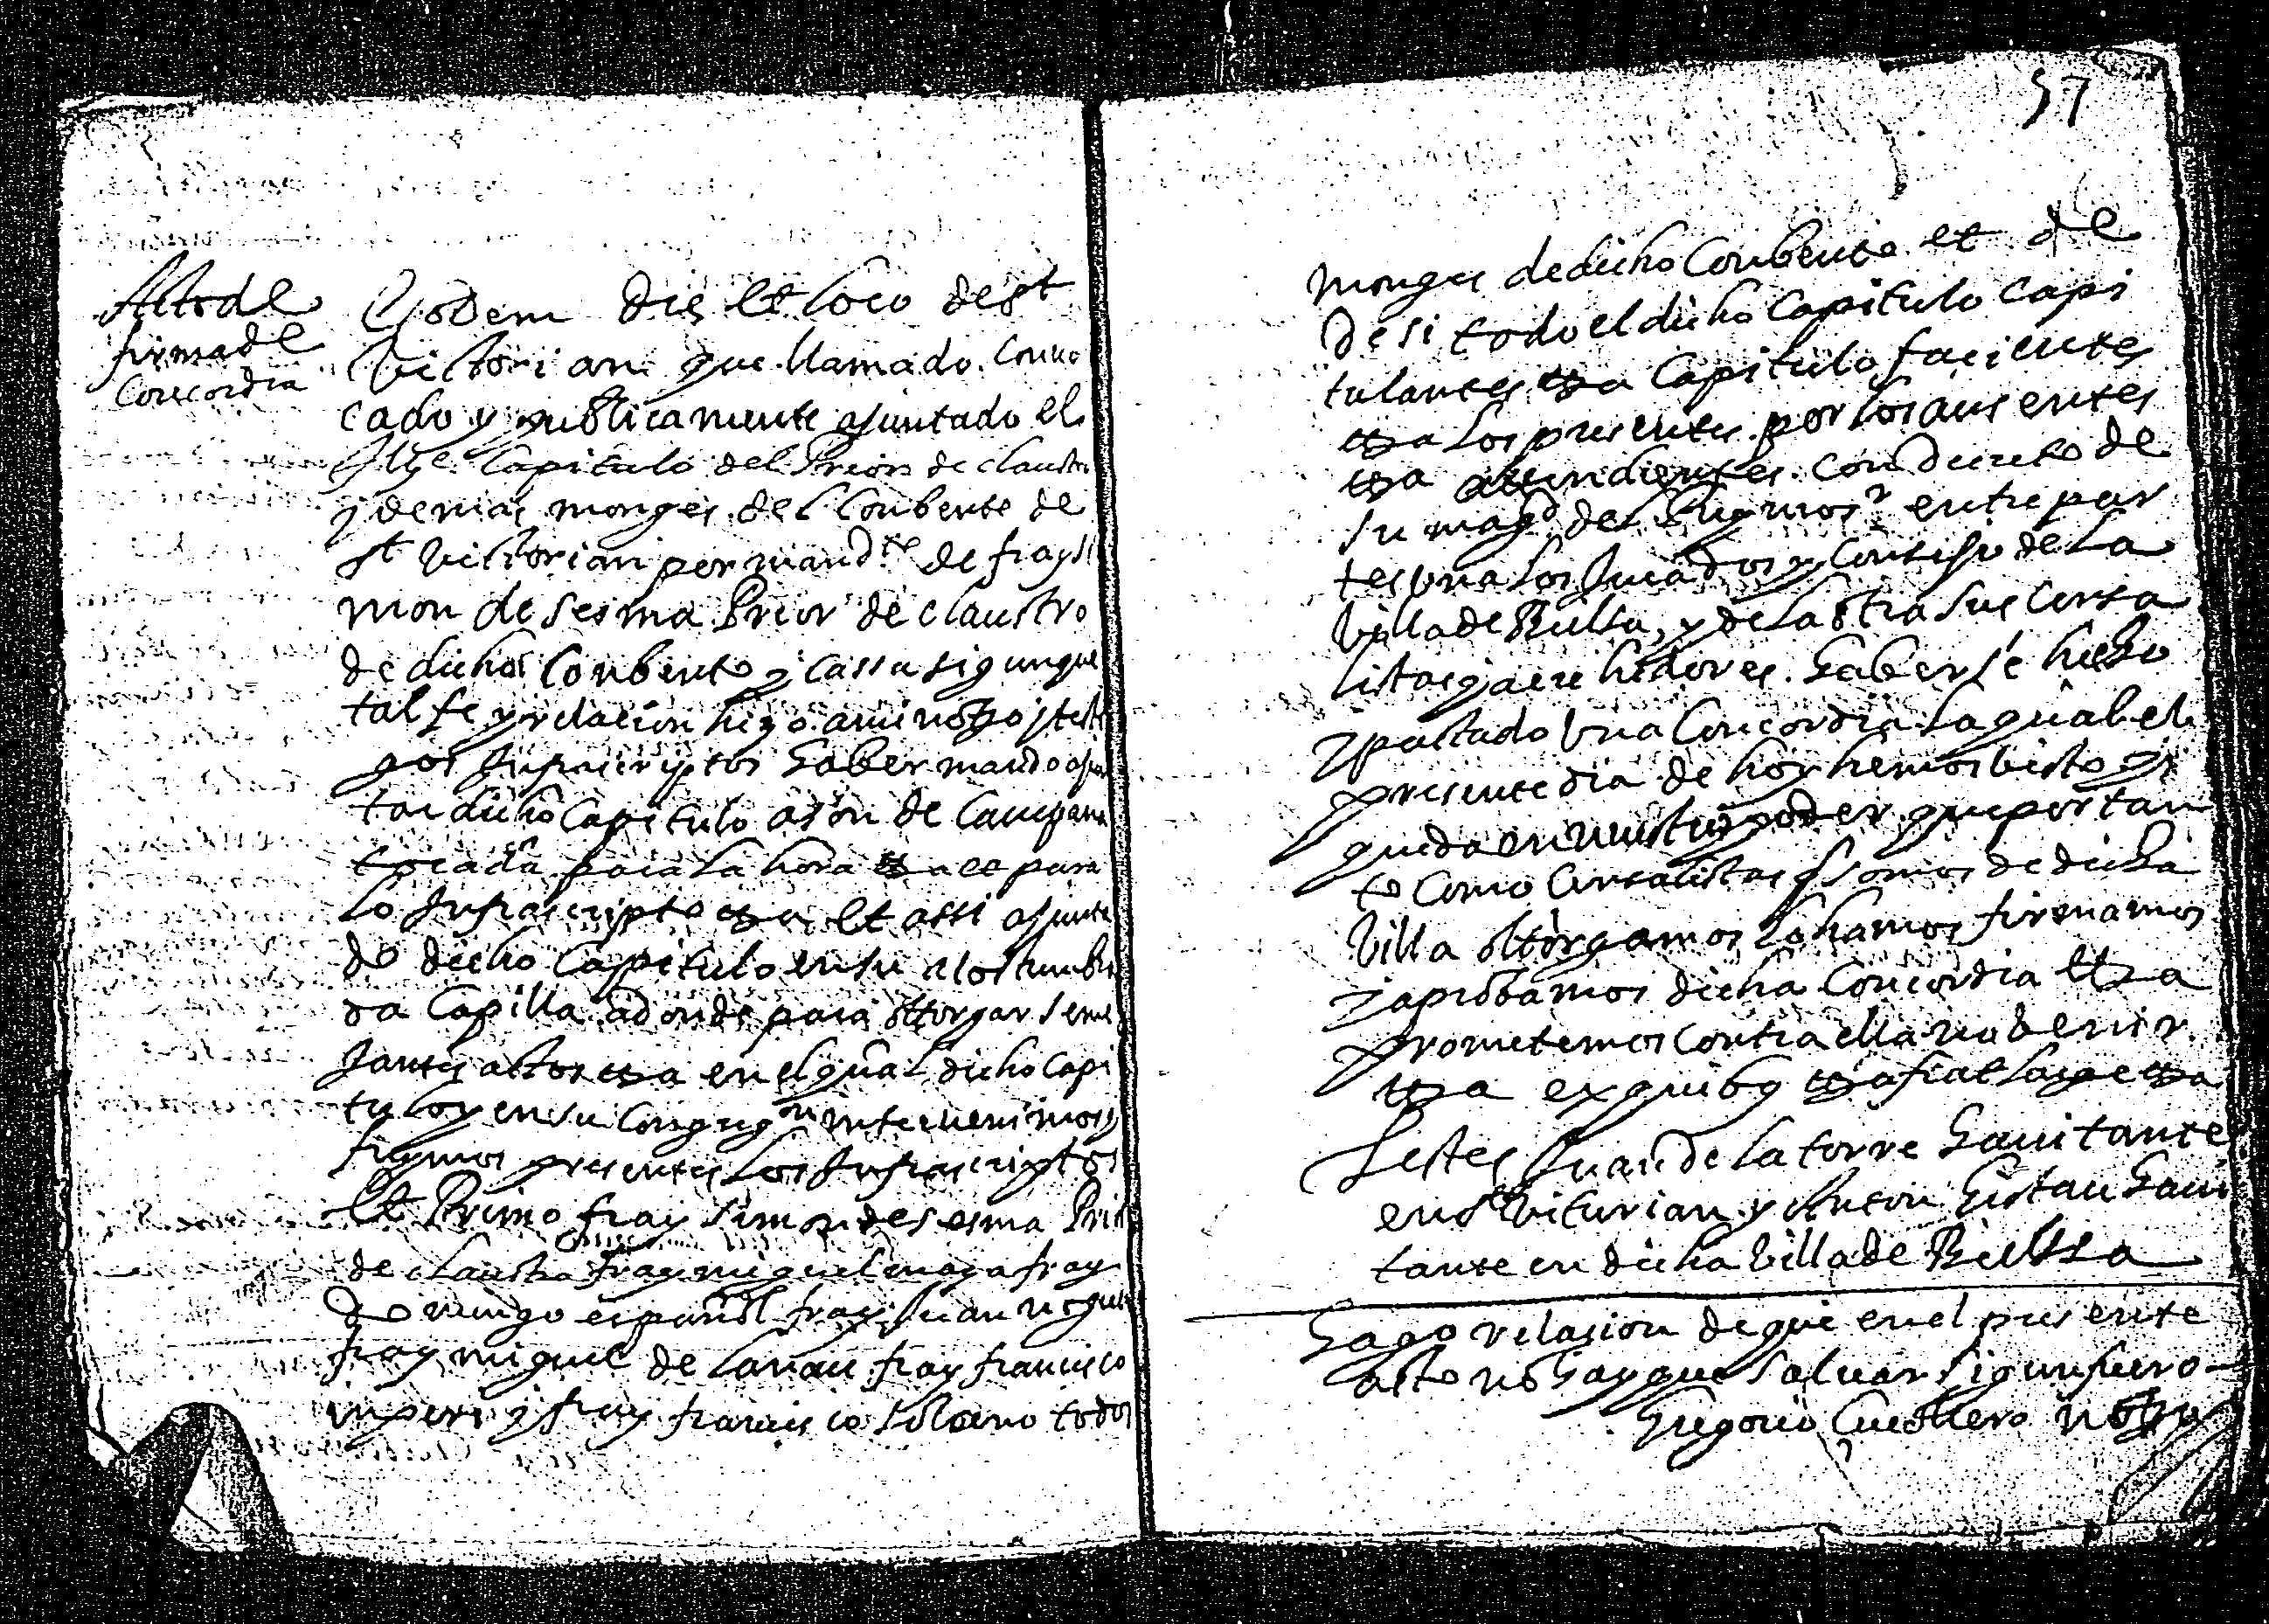 Acto de
firma de
Concordia
Eodem die et loco de st
Victorian que llamado conuo
cado y publicamente ajuntado el
Capitulo del Prior de claustro
y demas monges del Conbento de
st Victorian por mand.to de fray si
mon de sesma Prior de claustro
de dicho Conbento y cassa sigun que
tal fe y relacion hizo a mi noto y testi
gos Infrascriptos haber mandado ajun
tar dicho Capitulo a son de Campana
tocada para la hora et para
lo Infrascripto et assi ajunta
do dicho Capitulo en su acostumbra
da Capilla adonde para ottorgar seme
jantes actos en el qual dicho Capi
tulo y en su Congreg.on interuenimos y
fuymos presentes los Infrascriptos
Et Primo fray simon de sesma Prior
de claustro fray miguel maza fray
Domingo español fray Juan nogues
fray miguel de lanau fray francisco
y fray francisco solano todos
57
monges de dicho Conbento et de
de si todo el dicho Capitulo capi
tulantes Capitulo facientes
los presentes por los ausentes
con decreto de
su mag.d del entre par
tes una los Jurados y Consejo de la
Villa de Bielsa, y de la otra sus Censa
listas y acrehedores. haberse hecho
y pactado una Concordia la qual el
presente dia de hoy hemos bisto y
queda en nuestro poder que por tan
to Como Censalistas q somos de dicha
Villa ottorgamos lohamos firmamos
y aprobamos dicha Concordia
prometemos contra ella no benir
ex quibus fiat large
Testes Juan de la torre hauitante
en st Viturian y Anton Gistau haui
tante en dicha Villa de Bielssa
Hago relasion de que en el presente
acto no hay que saluar sigun fuero
Gregorio Notro